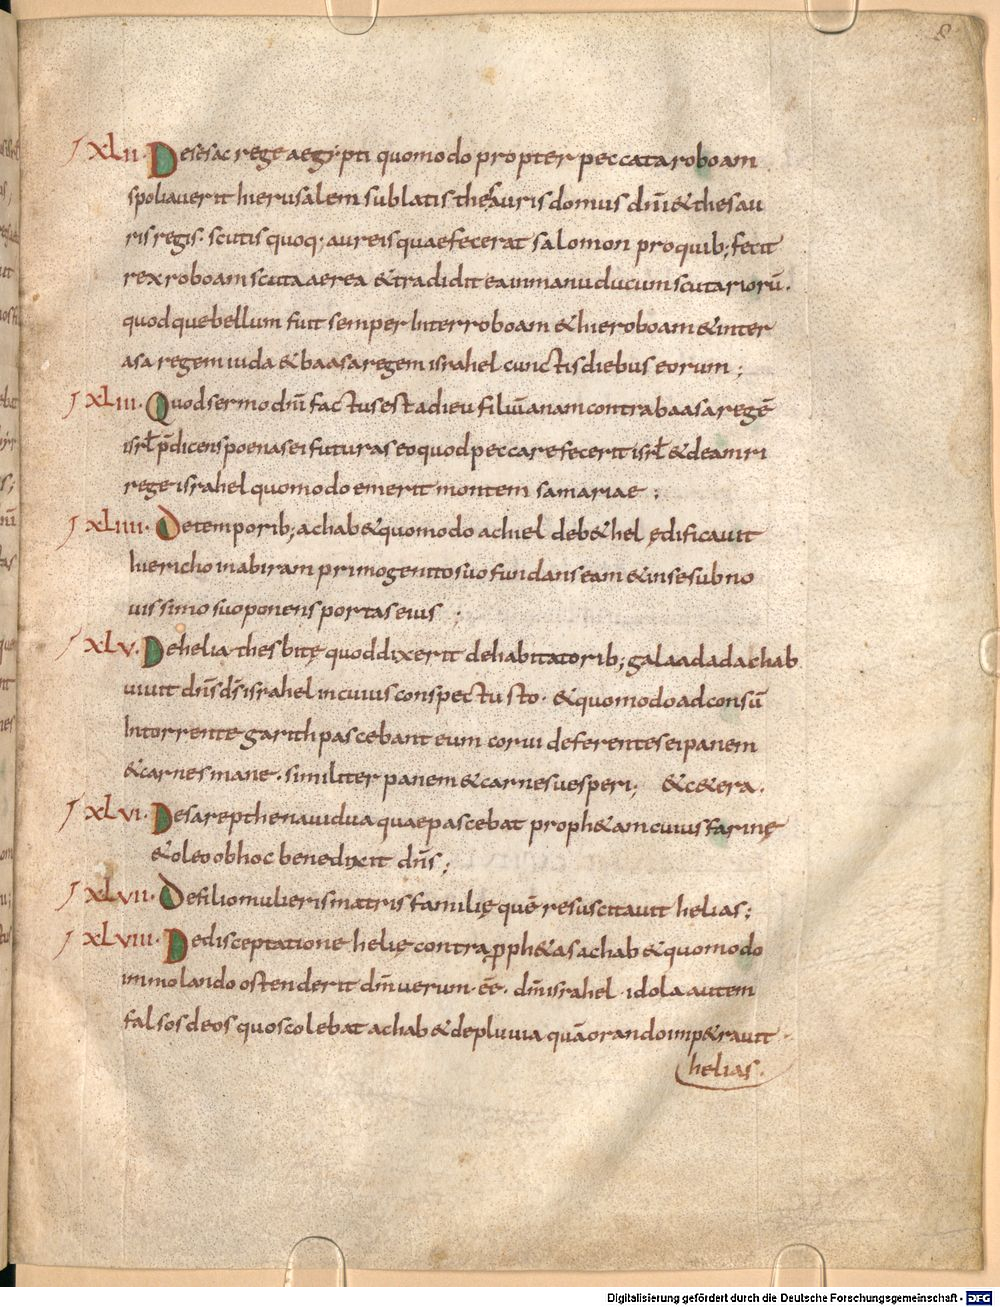 XLII. De sesac rege aegypti quomodo propter peccata roboam
spoliauerit hierusalem sublatis thesauris domus dñi & thesau
ris regis. scutis quoq; aureis quae fecerat salomon pro quib; fecit
rex roboam scuta aerea & tradidit ea in manu ducum scutariorū.
quodque bellum fuit semper Inter roboam & hieroboam & inter
asa regem iuda & baasa regem israhel cunctis diebus eorum;
XLIII. Quod sermo dñi factus est ad ieu filiū anam contra baasa regē
isrł p̄dicens poenas ei futuras eo quod peccare fecerit isrł & de amri
rege israhel quomodo emerit montem samariae;
XLIIII. De temporib; achab & quomodo achiel de b&hel ędificauit
hiericho in abiram primogenito suo fundans eam & in sesub no
uissimo suo ponens portas eius;
XLV. De helia thesbitę quod dixerit de habitatorib; galaad ad achab
uiuit dñs ds̄ israhel in cuius conspectu sto. & quomodo ad consū
In torrente garith pascebant eum corui deferentes ei panem
& carnes mane. similiter panem & carnes uesperi; & c&era.
XLVI. De sarepthena uidua quae pascebat proph&am cuius farinę
& oleo ob hoc benedixit dñs;
XLVII. De filio mulieris matris familię quē resuscitauit helias;
XLVIII. De disceptatione helię contra ꝓph&as achab & quomodo
immolando ostenderit dm̄ uerum. eē. dm̄ israhel. idola autem
falsos deos quos colebat achab & de pluuia quā orando imp&rauit.
helias.
Digitalisierung gefördert durch die Deutsche Forschungsgemeinschaft - DFG